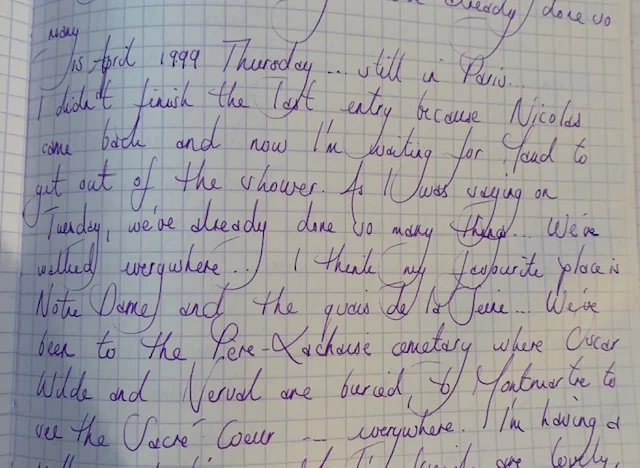 already done so
many
15 April 1999 Thursday... still in Paris...
I didn't finish the last entry because Nicolas
came back and now I'm waiting for Maud to
get out of the shower. As I was saying on
Tuesday, we've already done so many things... We've
walked everywhere... I think my favourite place is
Notre Dame and the quais de la Seine... We've
been to the Père-Lachaise cemetary where Oscar
Wilde and Nerval are buried, to Montmartre to
see the Sacré Coeur ... everywhere. I'm having a
are lovely,